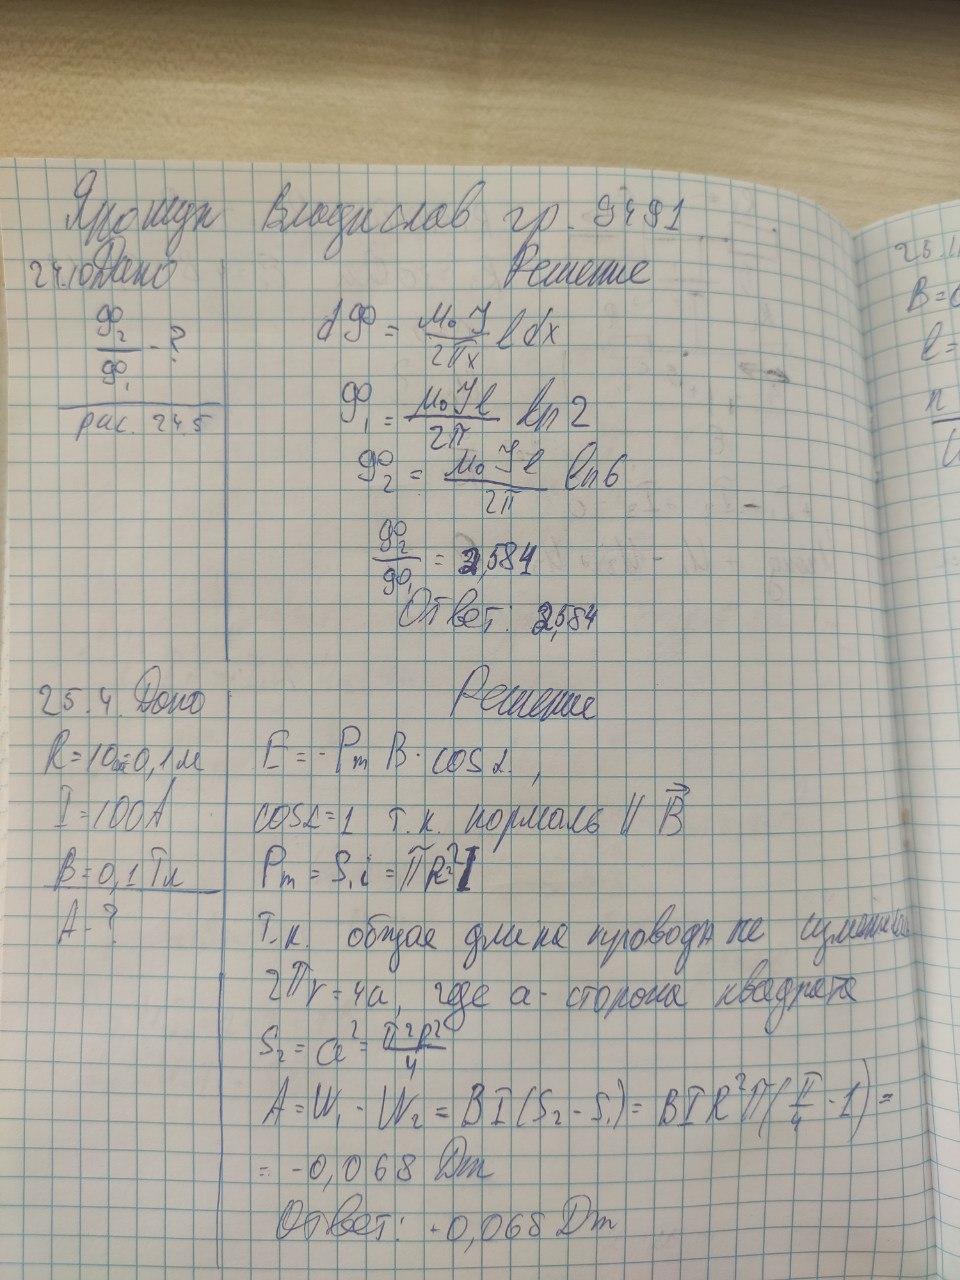 Ярошук Владислав гр. 9491
24.10 Дано
Решение
φ₂/φ₁ - ?
рис. 24.5
dφ = μ₀I/2πx l dx
φ₁ = μ₀Il/2π ln2
φ₂ = μ₀Il/2π ln6
φ₂/φ₁ = 2,584
Ответ: 2,584
25.4. Дано
Решение
R=10см=0,1м
I=100А
B=0,1Тл
A-?
E = -Pm B · cosα,
cosα=1 т.к. нормаль || B⃗
Pm = S₁i = πR²I
Т.к. общая длина провода не
2πr=4a, где a- сторона квадрата
S₂ = a² = π²R²/4
A = W₁ - W₂ = BI(S₂-S₁) = BIR²π(π/4 - 1) =
= -0,068 Дж
Ответ: -0,068 Дж
25.11
B=0
l=
n